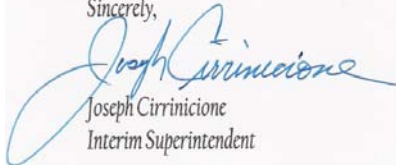 Sincerely,
Joseph Cirrinicione
Joseph Cirrinicione
Interim Superintendent